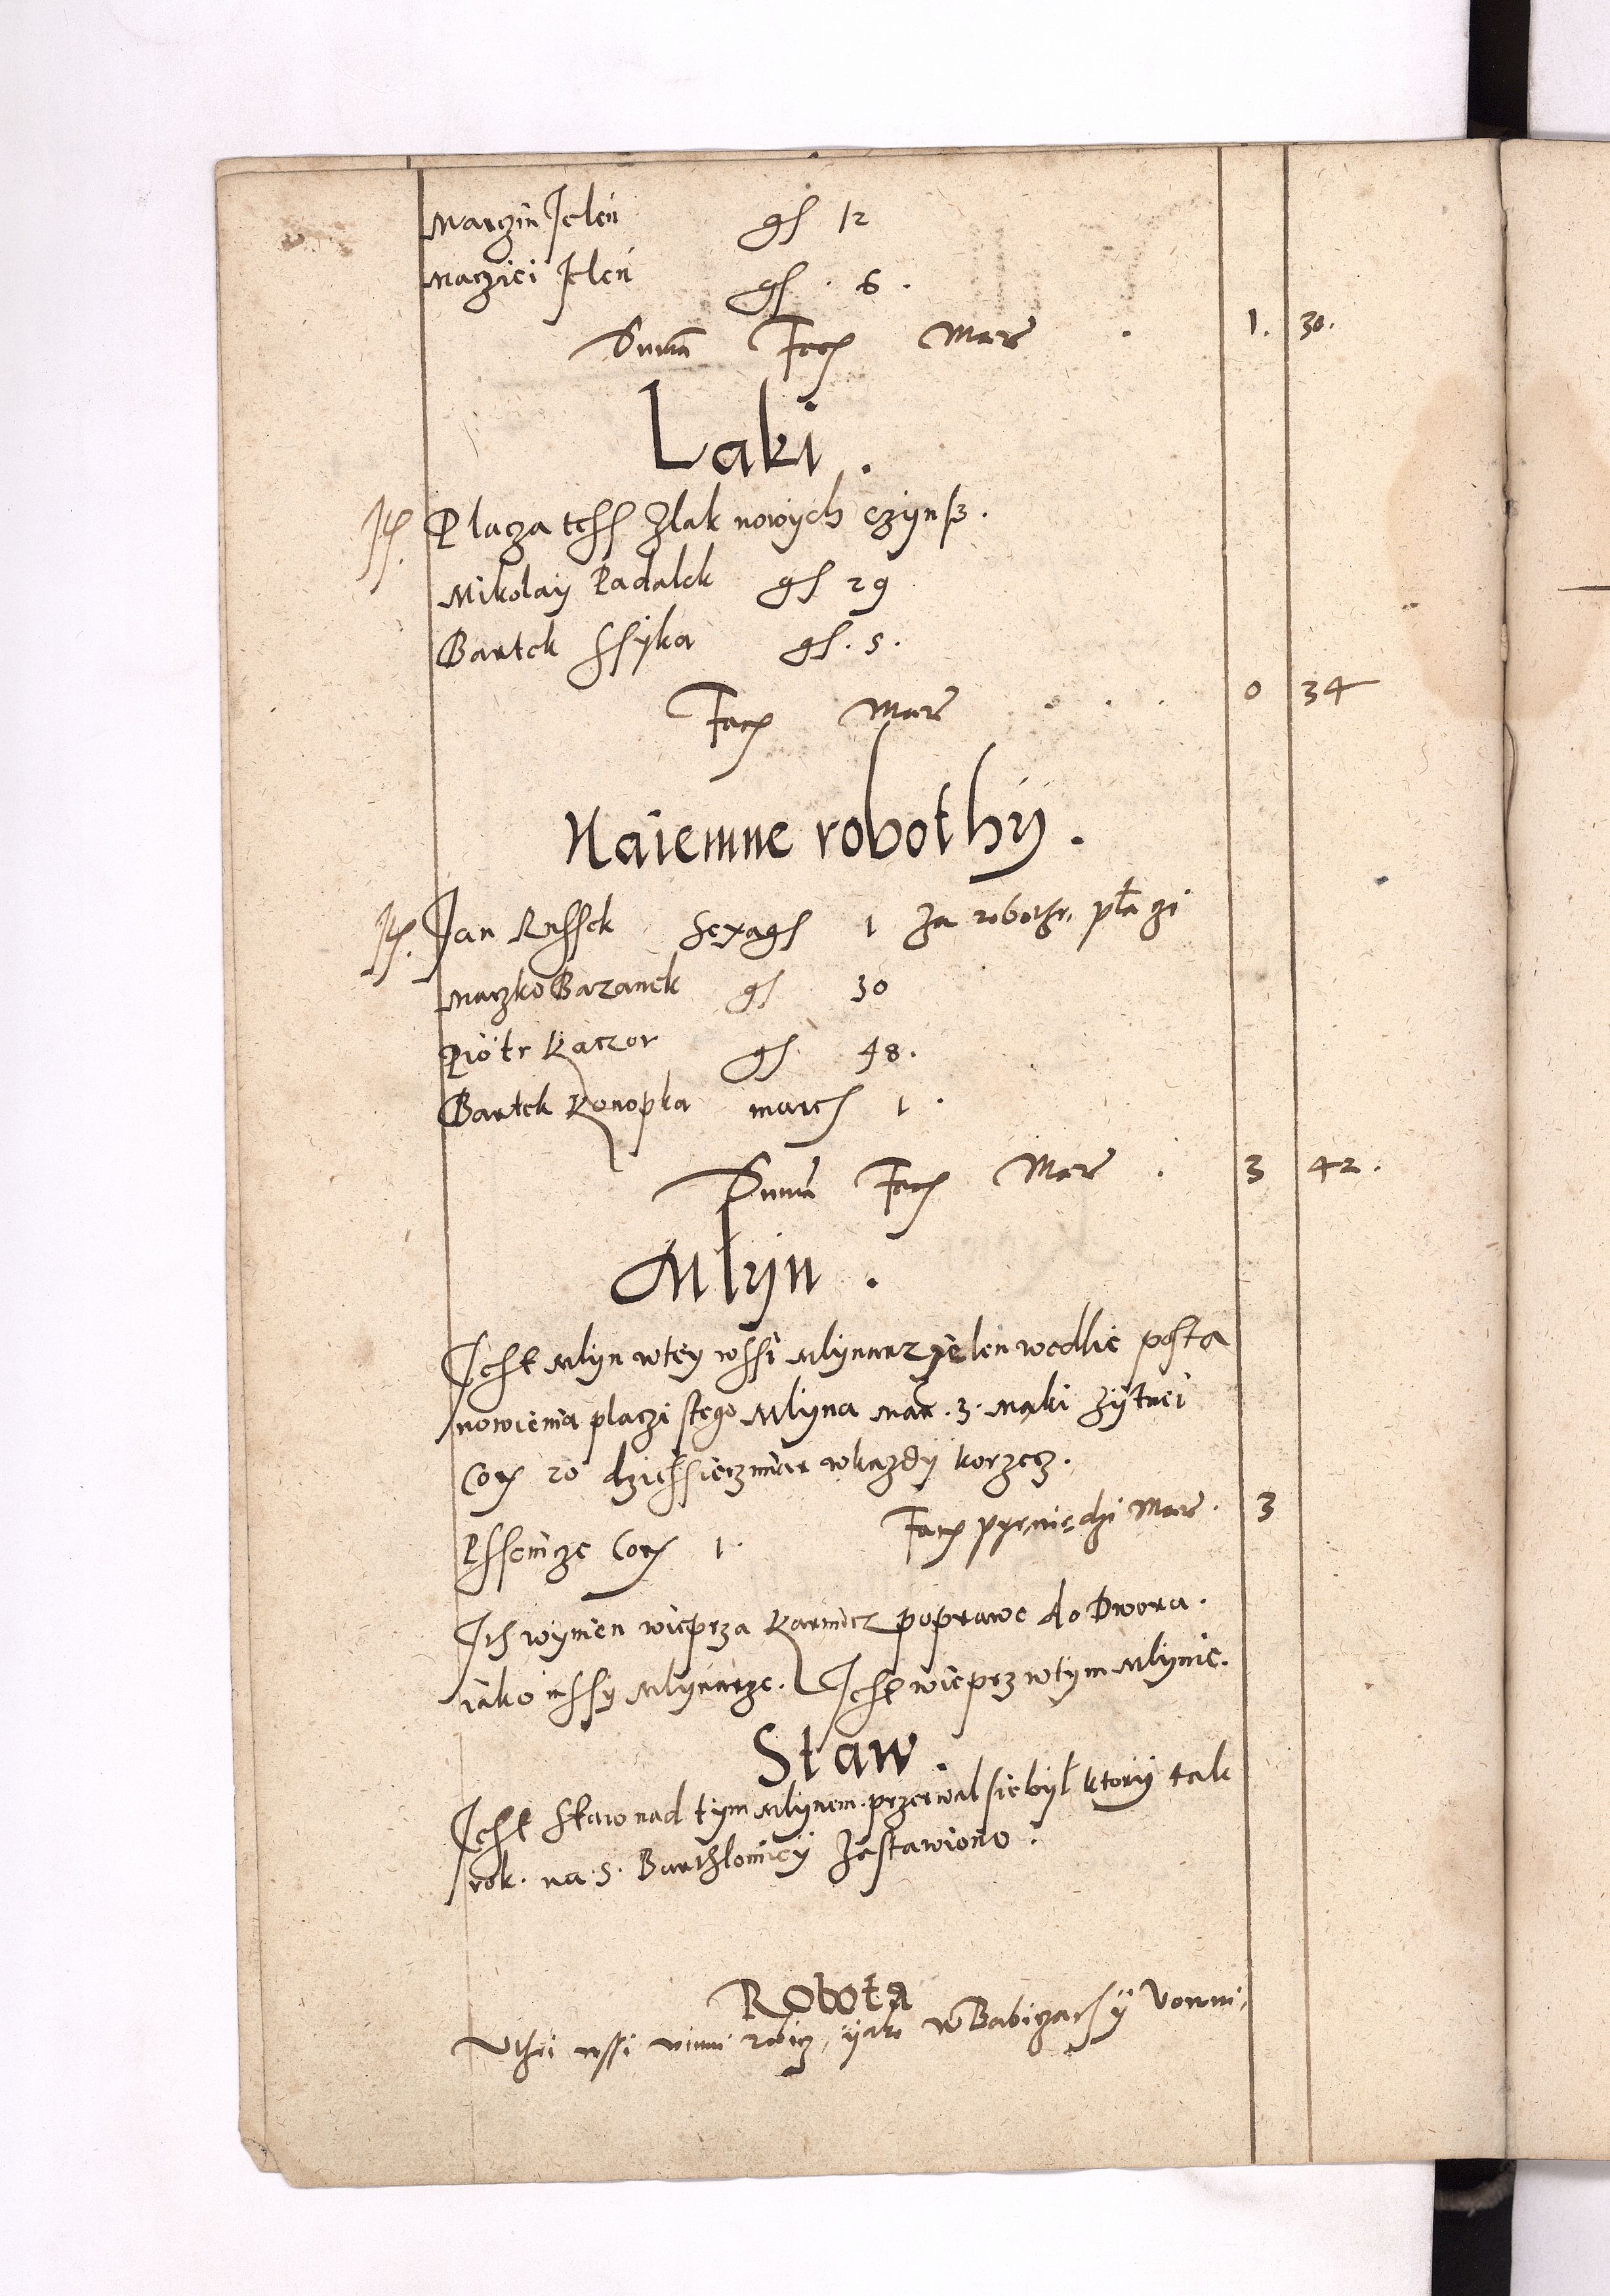 Marczin Jelen gs 12
Macziei Jelen gs . 6 .
Summa Facs Mar . 1. 30.
Laki .
Its. Placza tess z lak nowych czynß .
Mikolay Padalek gs 29
Bartek Ssyka gs . 5 .
Facs Mar . . . 0 34
Naiemne robothy .
Its. Jan Russek Sexags 1 za robothe, płaczi
Maczko Baranek gs 30
Piotr Kaczor gs 48 .
Bartek Konopka marcs 1 .
Summa Facs Mar . 3 42 .
Mlyn .
Jest Mlyn w tey wssi Mlynarz Jelen wedlie posta
nowienia placzi stego Mlyna Mar . 3 . Mąki żytnei
Cors 20 dziessiecz miar w kazdy korzecz .
Pssenicze Cors 1 . Facs pyeniędzi Mar . 3
Its wymen wieprza karmicz poprawe do Dwora .
iako inssy Mlynarze . Jest wieprz w tym Mlynie .
Staw .
Jest staw nad tym Mlynem . przerwal sie był ktory tak
rok . na S . Barthlomiey zastawiono .
Robota
Vthei wssi winni robicz, yako w Babiczach y